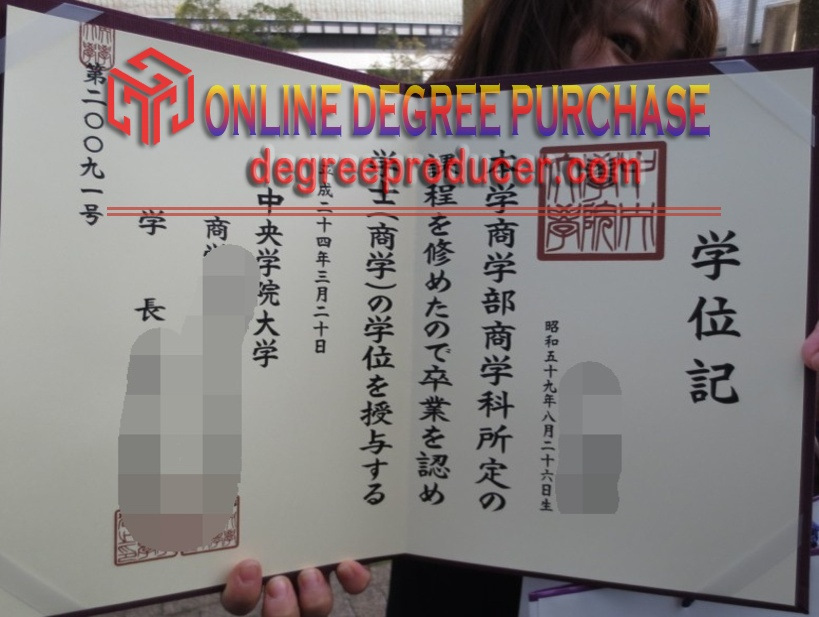 ONLINE DEGREE PURCHASE
degreeproducer.com
学位記
昭和五十九年八月二十六日生
本学商学部商学科所定の
課程を修めたので卒業を認め
学士(商学)の学位を授与する
平成二十四年三月二十日
中央学院大学
商学
学長
第二〇〇九一号